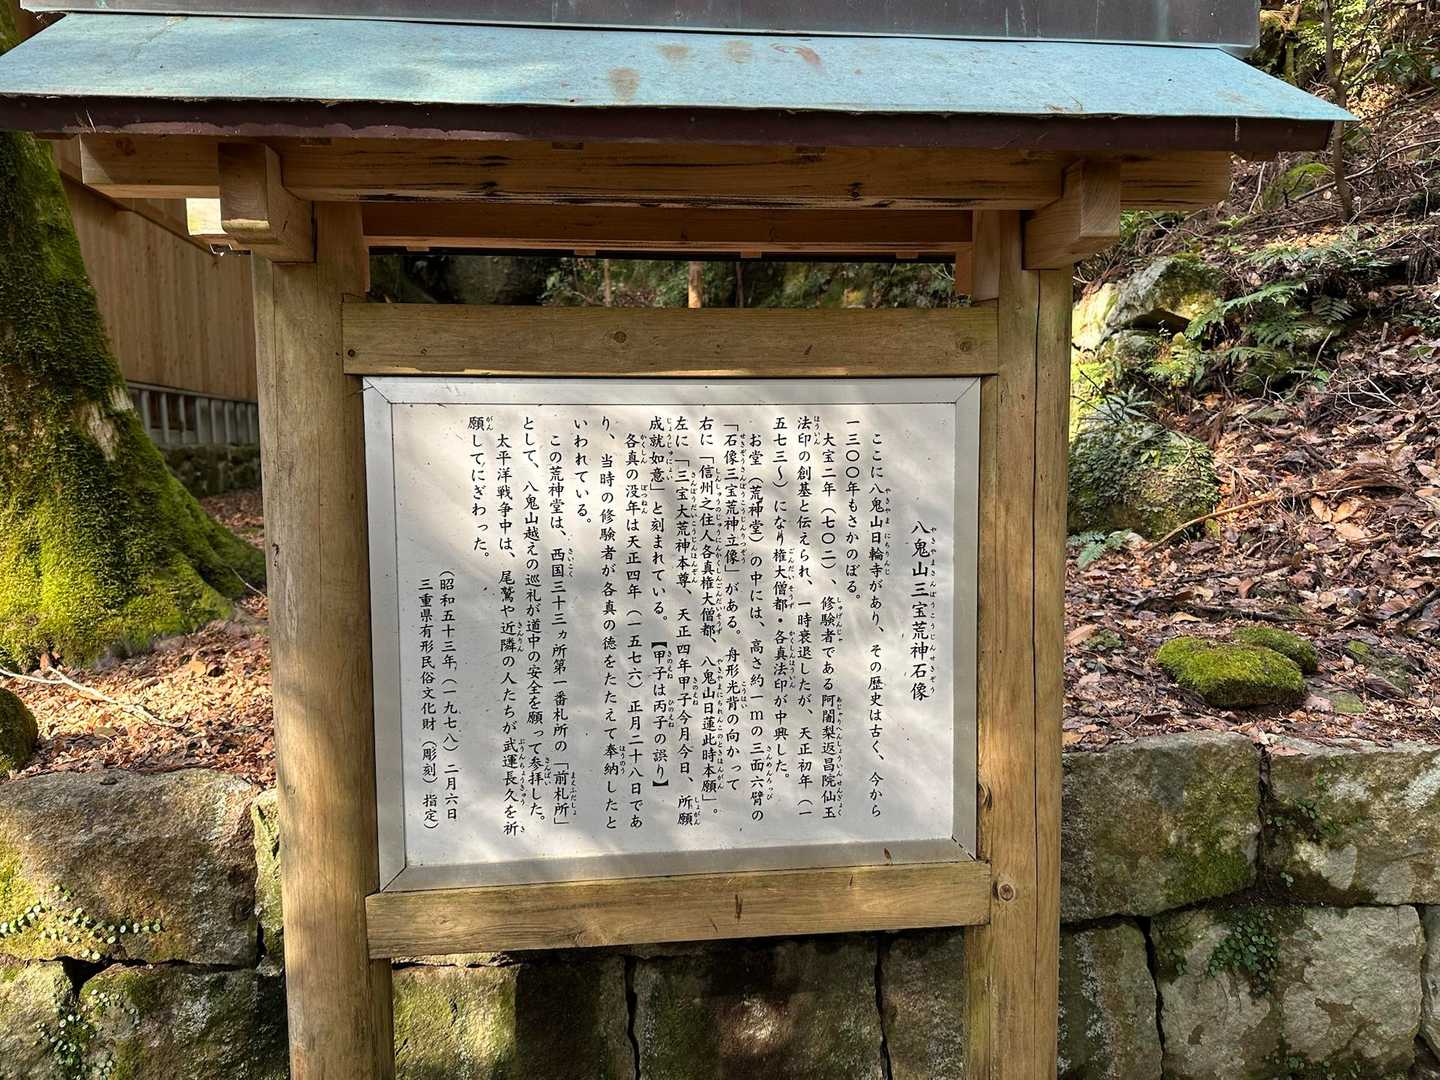 八鬼山三宝荒神石像
ここに八鬼山日輪寺があり、その歴史は古く、今から
一三〇〇年もさかのぼる。
大宝二年（七〇二）、修験者である阿闍梨返昌院仙玉
法印の創基と伝えられ、一時衰退したが、天正初年（一
五七三〜）になり権大僧都・各真法印が中興した。
お堂（荒神堂）の中には、高さ約一ｍの三面六臂の
「石像三宝荒神立像」がある。舟形光背の向かって
右に「信州之住人各真権大僧都　八鬼山日蓮此時本願」。
左に「三宝大荒神本尊、天正四年甲子今月今日、所願
成就如意」と刻まれている。【甲子は丙子の誤り】
各真の没年は天正四年（一五七六）正月二十八日であ
り、当時の修験者が各真の徳をたたえて奉納したと
いわれている。
この荒神堂は、西国三十三ヵ所第一番札所の「前札所」
として、八鬼山越えの巡礼が道中の安全を願って参拝した。
太平洋戦争中は、尾鷲や近隣の人たちが武運長久を祈
願してにぎわった。
（昭和五十三年（一九七八）二月六日
三重県有形民俗文化財（彫刻）指定）